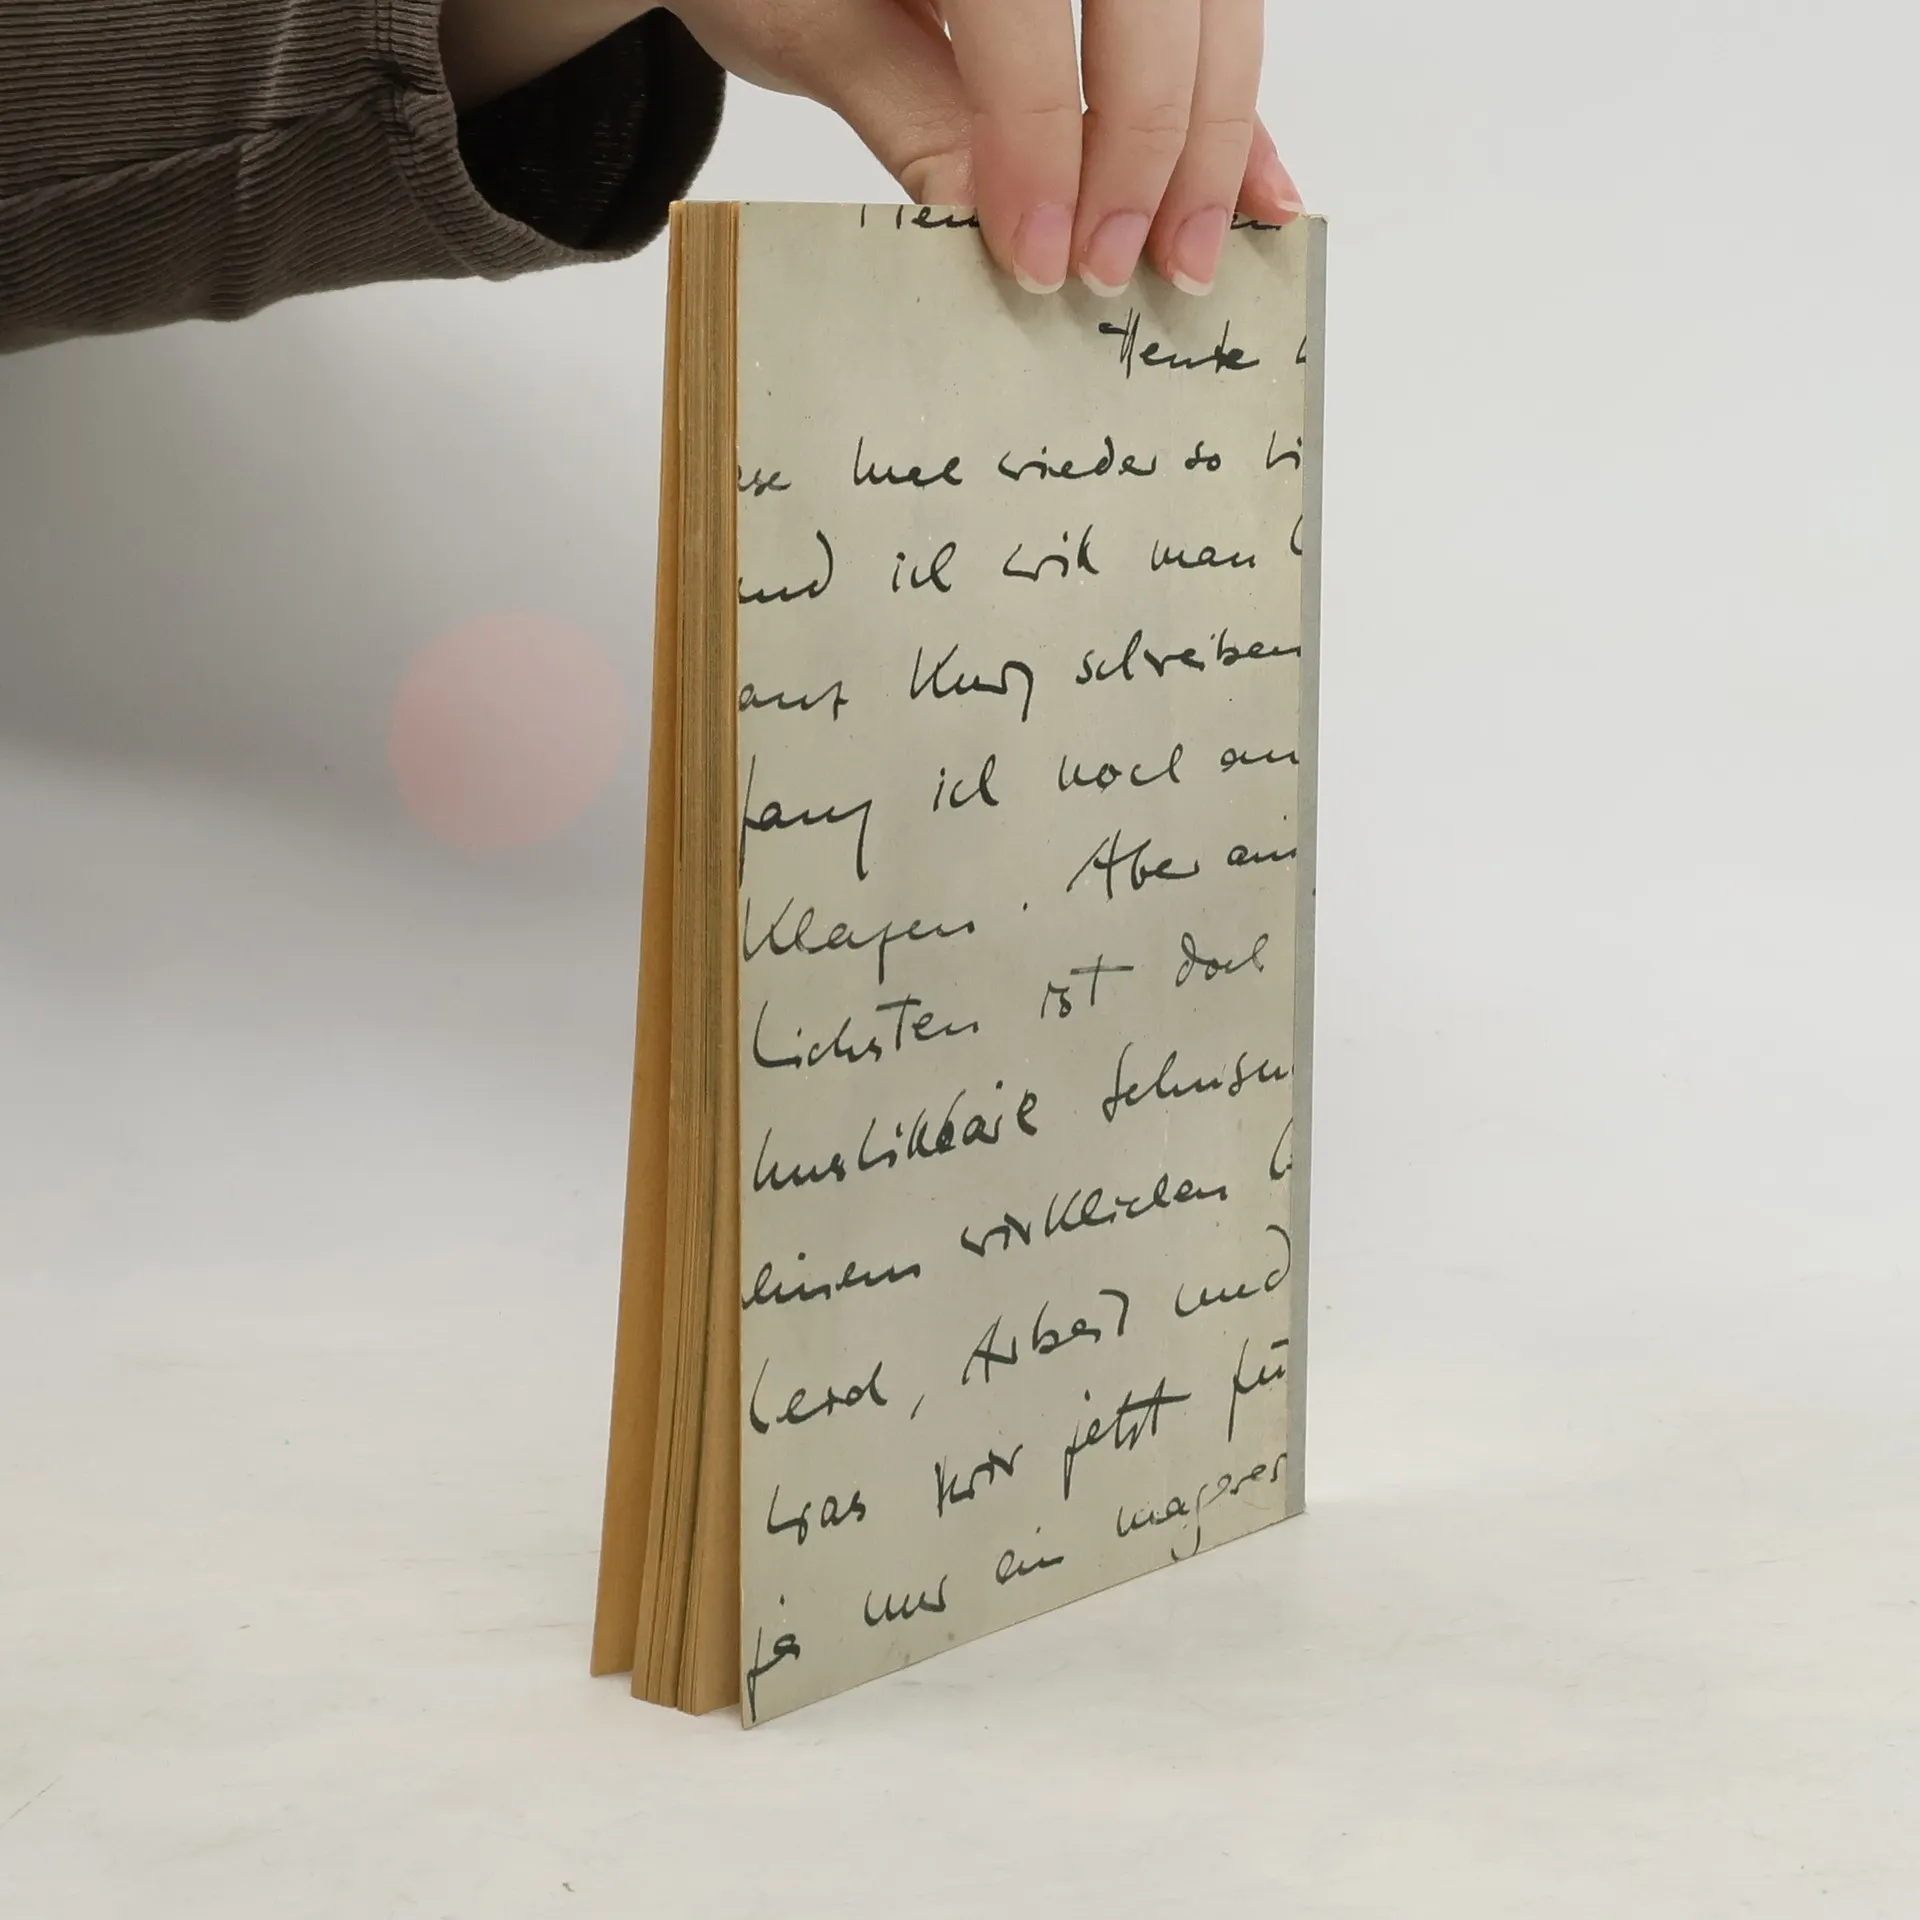 Heute
mal wieder so
und ich will man
auf Kurz schreiben
fang ich noch an
Klagen. Aber am
lichsten ist doch
unstillbare Sehnsu
einem wirklichen
Leid, Arbeit und
was wir jetzt fü
ja nur ein magerer